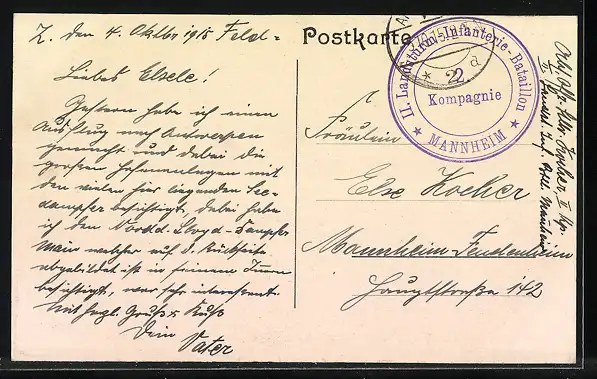 Z. den 4. Oktbr 1915 Feld=
Liebes Elsele!
Gestern habe ich einen
Ausflug nach Antwerpen
gemacht und dabei die
großen Hafenanlagen mit
den vielen hier liegenden See-
dampfer besichtigt, dabei habe
ich den Nordd. Lloyd-Dampfer
Main welcher auf d. Rückseite
abgebildet ist in seinem Innern
besichtigt, war sehr interessant.
Mit herzl. Gruß & Kuß
Dein
Vater
Postkarte
II. Landsturm-Infanterie-Bataillon
2.
Kompagnie
* MANNHEIM *
d
Fräulein
Else Kocher
Mannheim-Feudenheim
Hauptstraße 142
Kocher, II Kp.
II. Landst. Inf. Batl. Mannheim